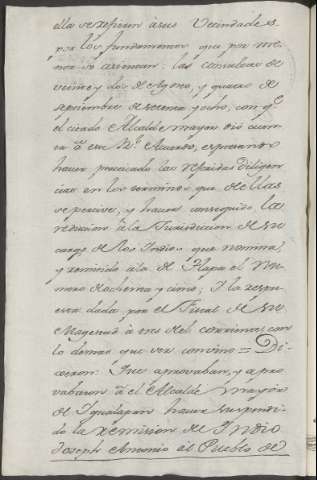 ella se refieren à sus Vecindades
por los fundamentos que por me
nor se asientan: las consultas de
veinte y dos de Agosto, y quatro de
septiembre de setenta y ocho, con qᵉ
el citado Alcalde mayor dió cuen
ta â este Rˡ. Acuerdo, expresando
haver practicado las referidas diligen
cias en los terminos que de ellas
se percive, y haver conseguido la
reducion â la Jurisdiccion de su
cargo de los Indios que nomina,
y remitido â la de Tlapa el Nu
mero de ochenta y cinco; Y la respu
esta dada por el Fiscal de su
Magestad â tres del corriente, con
lo demas que ver convino = Di
xeron: Que aprovaban, y apro
vabaron â el Alcalde mayor
de Igualapan haver suspendi
do la remision de Indio
Joseph Antonio al Pueblo de